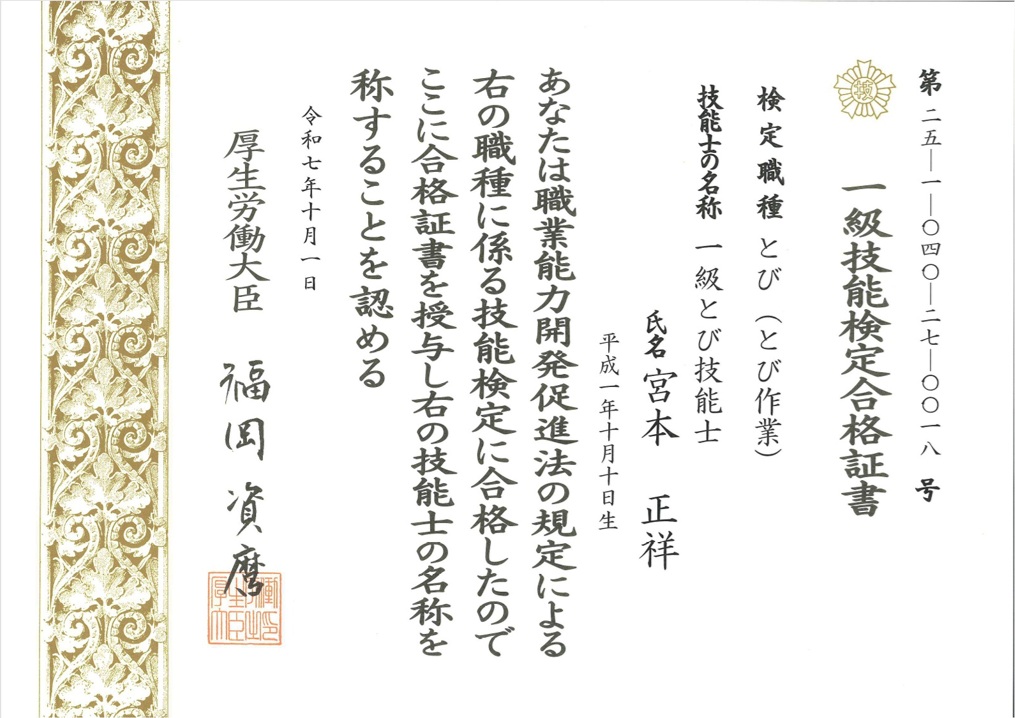 第二五―一―〇四〇―二七―〇〇一八号
一級技能検定合格証書
検定職種 とび（とび作業）
技能士の名称 一級とび技能士
氏名 宮本 正祥
平成一年十月十日生
あなたは職業能力開発促進法の規定による
右の職種に係る技能検定に合格したので
ここに合格証書を授与し右の技能士の名称を
称することを認める
令和七年十月一日
厚生労働大臣 福岡 資麿